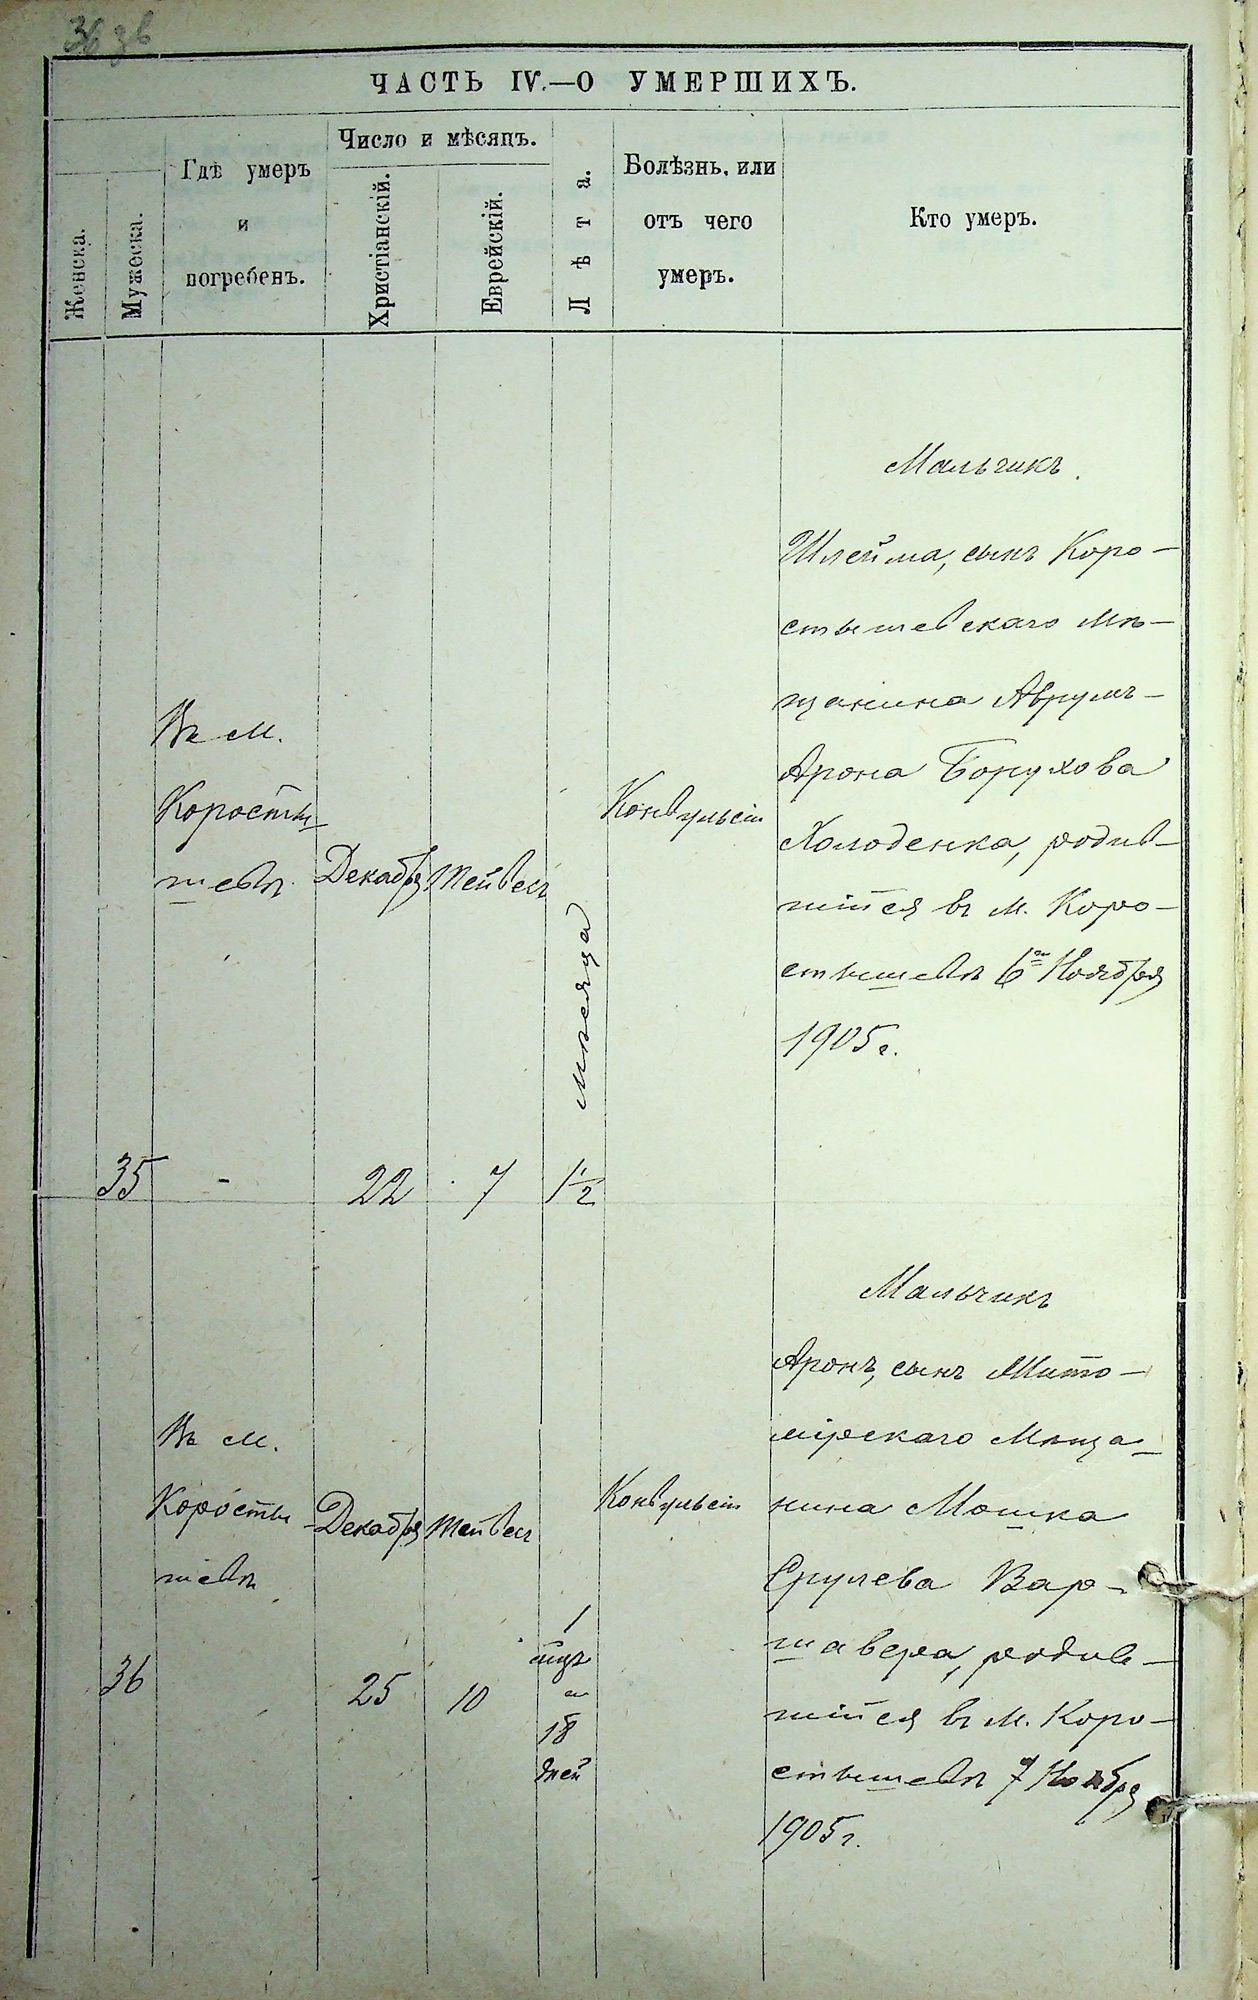 36 зв
ЧАСТЬ IV.—О УМЕРШИХЪ.
Женска.
Мужеска.
Гдѣ умеръ
и
погребенъ.
Число и мѣсяцъ.
Христіанскій.
Еврейскій.
Лѣта.
Болѣзнь, или
отъ чего
умеръ.
Кто умеръ.
35
Въ м.
Коросты-
шевѣ
-
Декабря
22
Тейвесъ
7
Мѣсяца
1½
Конвульсіи
Мальчикъ.
Шлейма, сынъ Коро-
стышевскаго мѣ-
щанина Аврумъ-
Арона Борухова
Холоденка, родив-
шійся въ м. Коро-
стышевѣ 6го Ноября
1905 г.
36
Въ м.
Коросты-
шевѣ
Декабря
25
Тейвесъ
10
1
мцъ
и
18
дней
Конвульсіи
Мальчикъ
Аронъ, сынъ Жито-
мірскаго Мѣща-
нина Мошка
Срулева Вар-
шавера, родив-
шійся въ м. Коро-
стышевѣ 7 Ноября
1905 г.